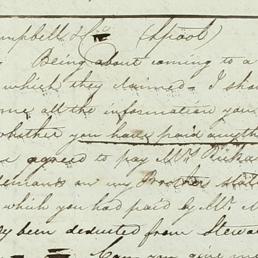 mpbell & Co Lpool
Being about coming to a
which they claimed I sha
me all the information you
whether you have paid anythi
agreed to pay Mr. Richa
demands on my Brother
which you had paid by Mr. M
ly been deducted from Stewar
Can you give me